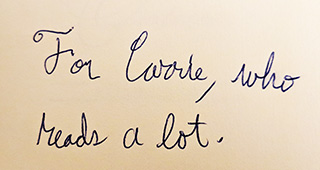 For Carrie, who
reads a lot.